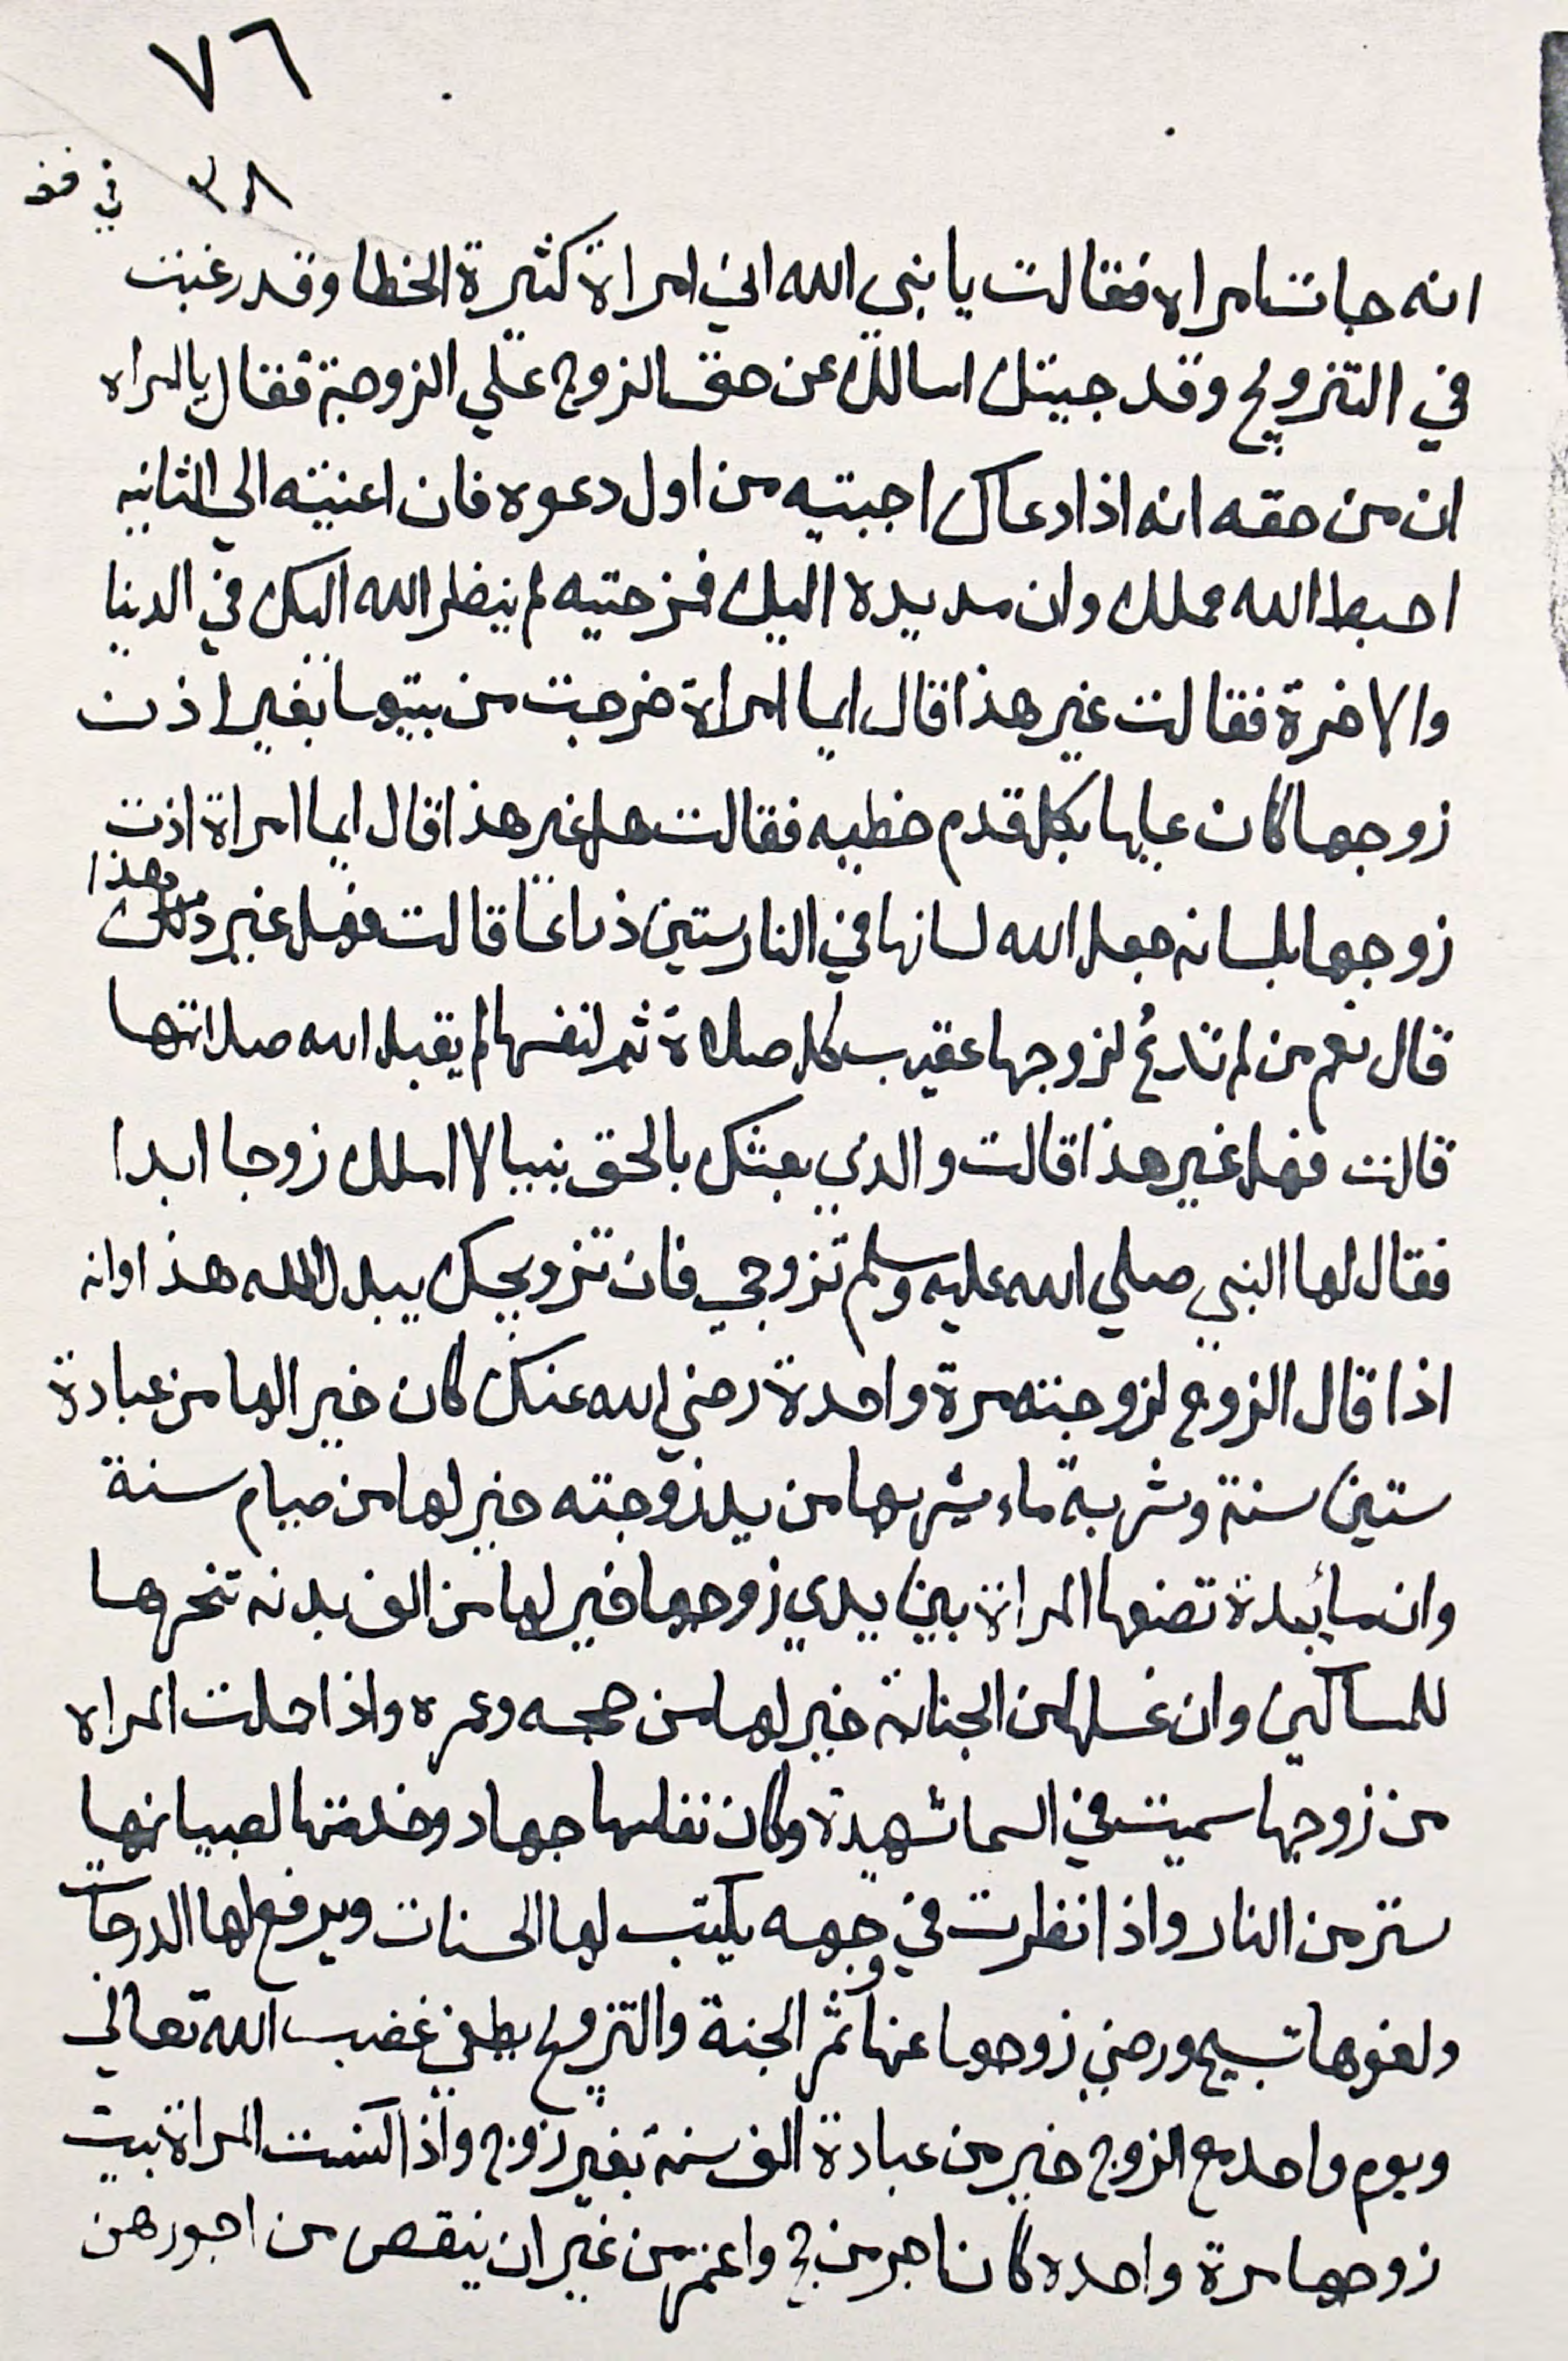 ٧٦
٣٨ في فضـ
انه جات امراة فقالت يا نبي الله اني امراة كثيرة الخطا وقد رغبت
في التزويج وقد جيتك اسالك عن حق الزوج علي الزوجة فقال يا امراه
ان من حقه انه اذا دعاك اجبتيه من اول دعوه فان اعنيته الي الثانيه
احبط الله عملك وان مد يده اليك فزحتيه لم ينظر الله اليك في الدنيا
والاخرة فقالت غير هذا قال ايما امراة خرجت من بيتها بغير اذن
زوجها كان عليها بكل قدم خطيه فقالت هل غير هذا قال ايما امراة اذت
زوجها بلسانه جعل الله لسانها في النار ستين ذراعا قالت فهل غير ذلك هذا
قال نعم من لم تدع لزوجها عقيب كل صلاة ثم لنفسها لم يقبل الله صلاتها
قالت فهل غير هذا قالت والذي بعثك بالحق نبيا لا املك زوجا ابدا
فقال لها النبي صلي الله عليه وسلم تزوجي فان تزويجك يبدل الله هذا وانه
اذا قال الزوج لزوجته مرة واحدة رضي الله عنك كان خير الها من عبادة
ستين سنة وشربة ماء يشربها من يد زوجته خير لها من صيام سنة
وان مايدة تضعها المراة بين يدي زوجها خير لها من الف بدنه تنحرها
للمساكين وان غسلها من الجنابة خير لها من حجه وعمره واذا حملت المراه
من زوجها سميت في السما شهيدة وكان نفلها جهاد وخدمتها لصبيانها
ستر من النار واذا نظرت في وجهه يكتب لها الحسنات ويرفع لها الدرجات
ولغوها تسبيح ورضي زوجها عنها ثمر الجنة والتزويج يطفي غضب الله تعالي
ويوم واحد مع الزوج خير من عبادة الف سنة بغير زوج واذا كنست المراة بيت
زوجها مرة واحده كان اجر من حج واعتمر من غير ان ينقص من اجورهن